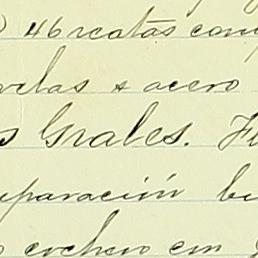 46 reatas com
velas & acero
s Grales. F
paración bu
cochero con